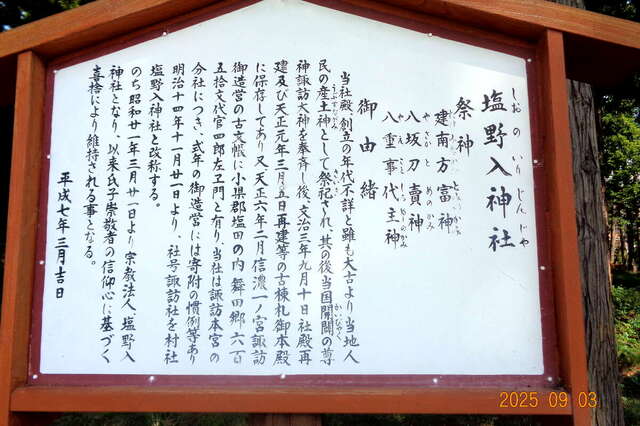 塩野入神社
しおのいりじんじゃ
祭神
建南方富神
八坂刀賣神
やさかとめのかみ
八重事代主神
御由緒
当社殿創立の年代不詳と雖も太古より当地人
民の産土神として祭祀され、其の後当国開闢の尊
神諏訪大神を奉斉し後、文治三年九月十日社殿再
建及び天正元年三月五日再建等の古棟札御本殿
に保存してあり又天正六年二月信濃一ノ宮諏訪
御造営の古文帳に小県郡塩田の内舞田郷六百
五拾文代官四郎左ヱ門と有り、当社は諏訪本宮の
分社につき、式年の御造営には寄附の慣例等あり
明治十四年十一月廿一日より、社号諏訪社を村社
塩野入神社と改称する。
のち昭和廿一年三月廿一日より宗教法人、塩野入
神社となり、以来氏子崇敬者の信仰心に基づく
喜捨により維持される事となる。
平成七年三月吉日
2025 09 03